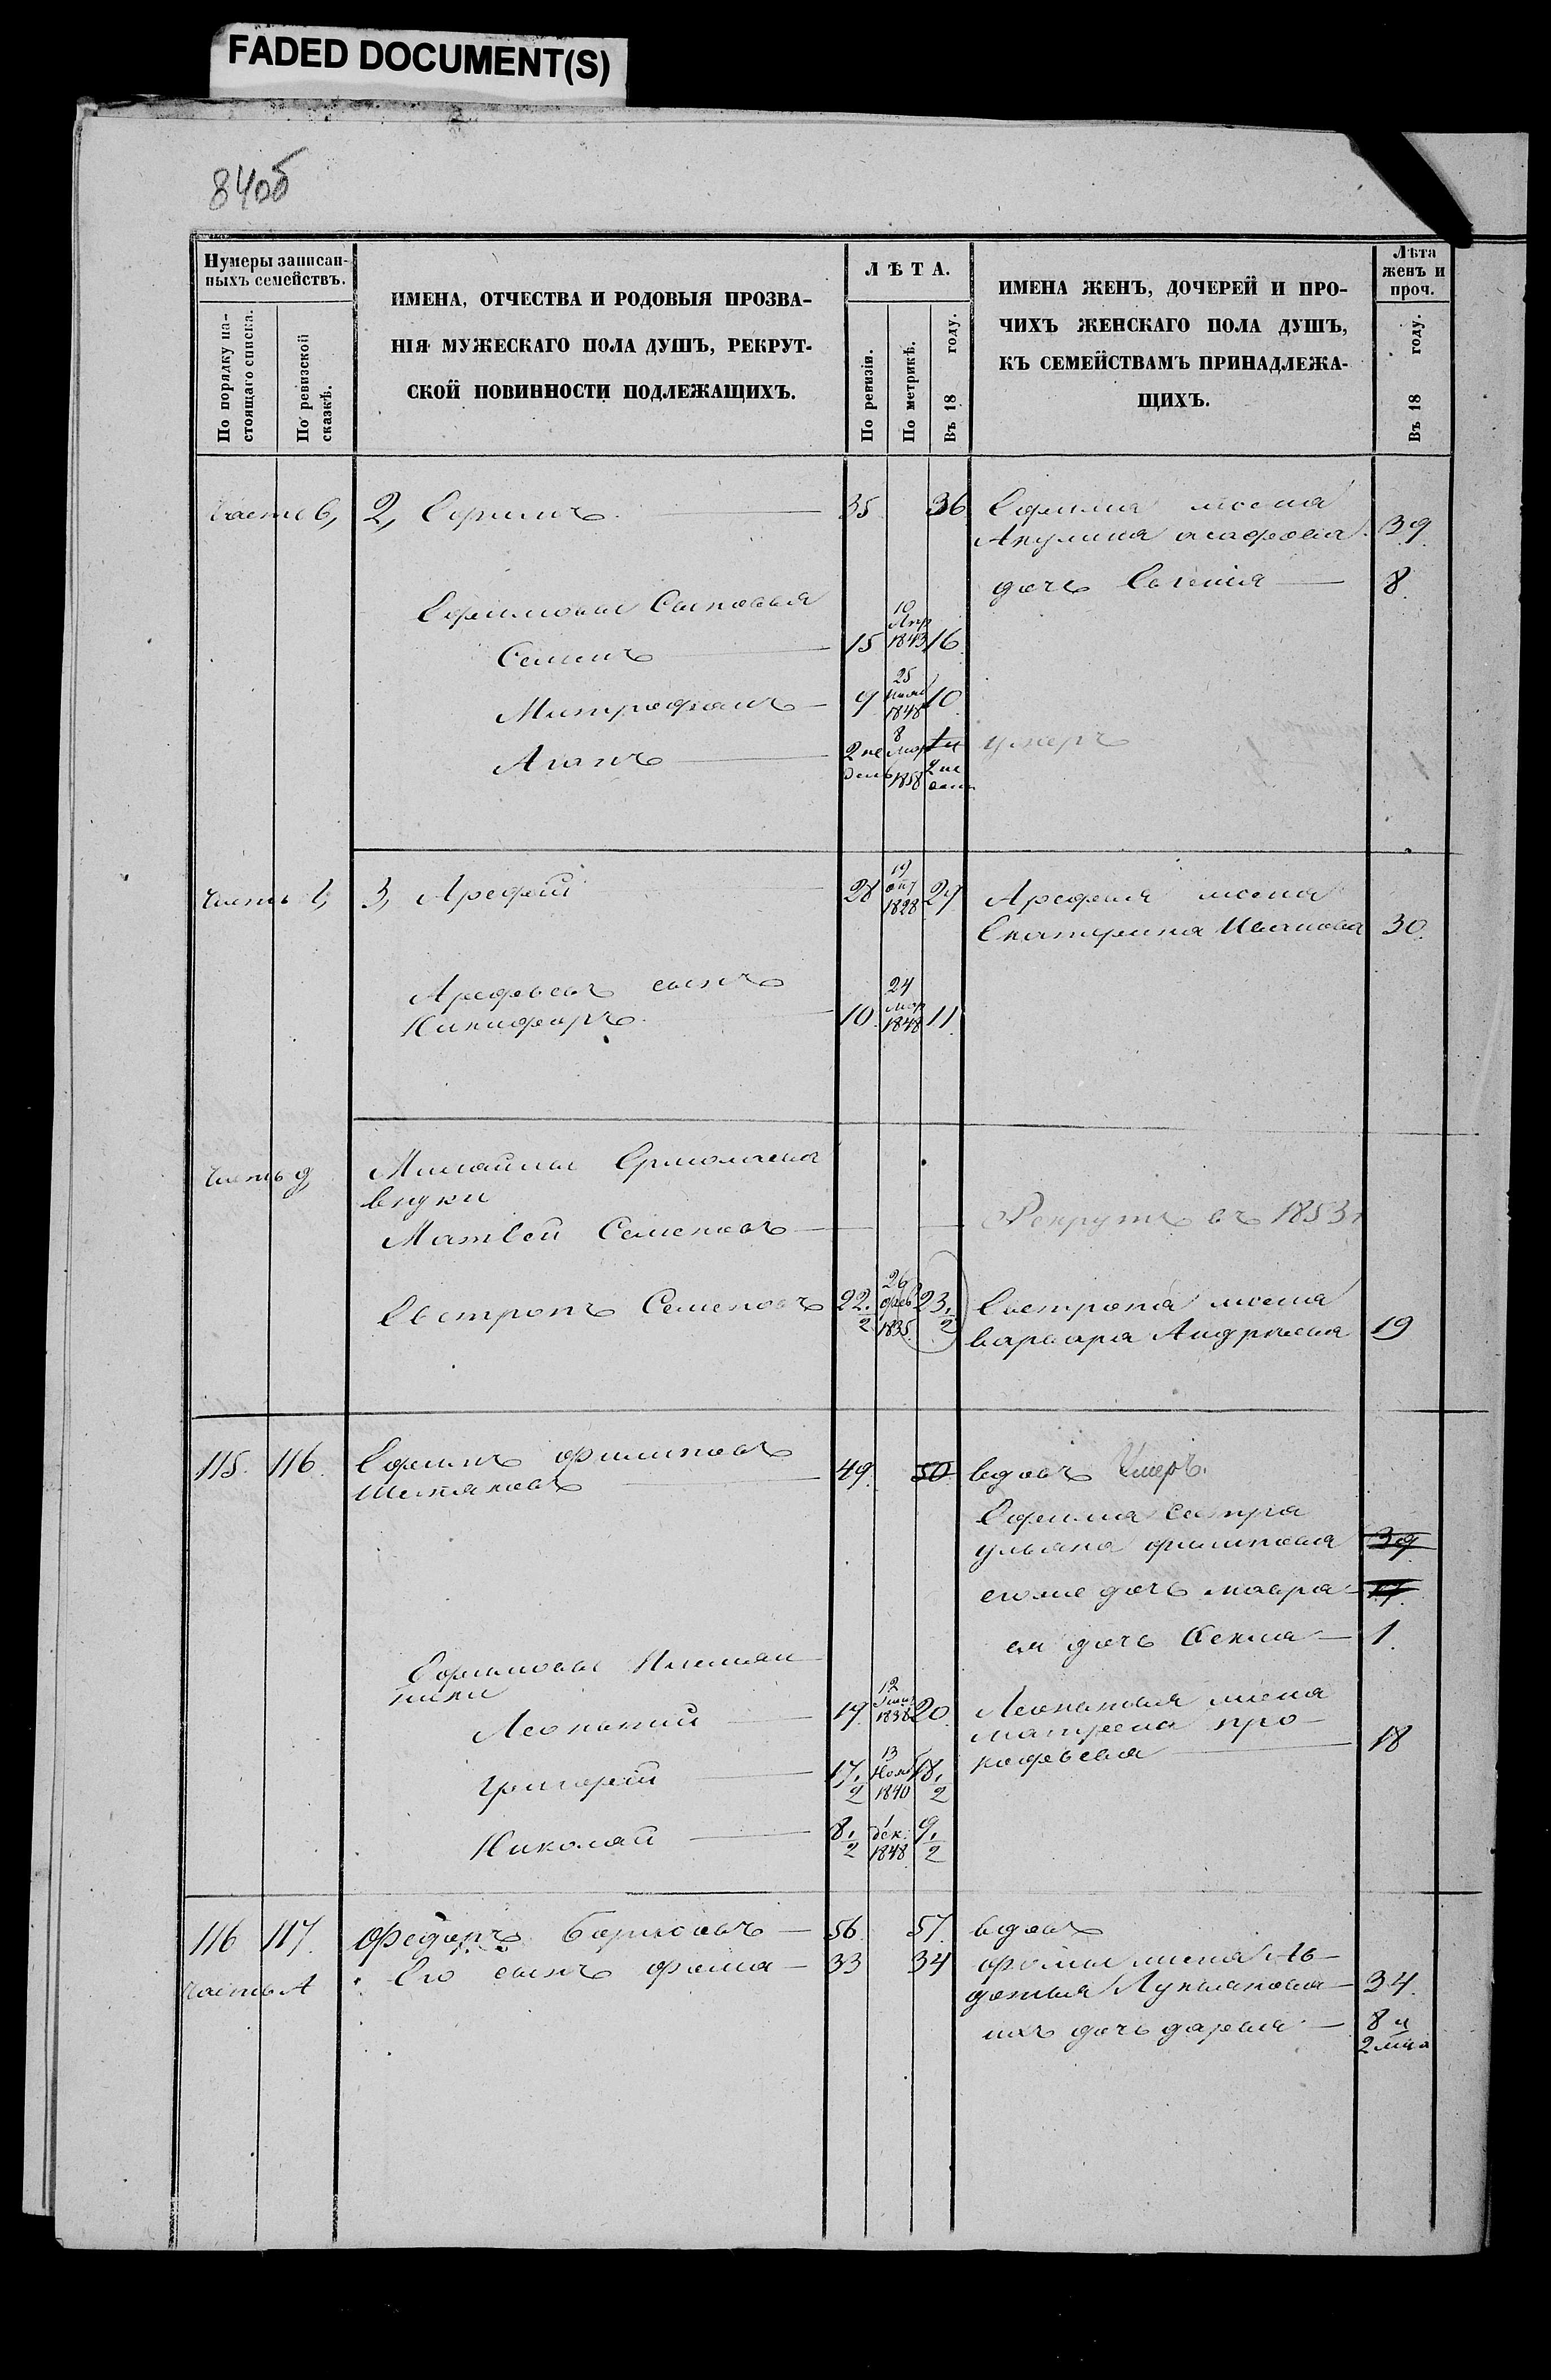 FADED DOCUMENT(S)
84об
Нумеры записан-
ныхъ семействъ.
По порядку на-
стоящаго списка.
По ревизской
сказкѣ.
ИМЕНА, ОТЧЕСТВА И РОДОВЫЯ ПРОЗВА-
НІЯ МУЖЕСКАГО ПОЛА ДУШЪ, РЕКРУТ-
СКОЙ ПОВИННОСТИ ПОДЛЕЖАЩИХЪ.
ЛѢТА.
По ревизіи.
По метрикѣ.
Въ 18 году.
ИМЕНА ЖЕНЪ, ДОЧЕРЕЙ И ПРО-
ЧИХЪ ЖЕНСКАГО ПОЛА ДУШЪ,
КЪ СЕМЕЙСТВАМЪ ПРИНАДЛЕЖА-
ЩИХЪ.
Лѣта
женъ и
проч.
Въ 18 году.
часть в, 2, Ефимъ 35 36 Ефима жена
Акулина 39
дочь Евгенія 8
Ефимовы Сыновья
Семенъ 15 10 Апр 1843 16
Митрофанъ 9 25 1848 10
Агапъ 2 не дель 8 мар 1858 2 не умеръ
часть 3, Арефій 28 19 окт 1828 29 Арефія жена
Екатерина Иванова 30
Арефьевъ сынъ
Никифоръ 10 24 мар 1848 11
часть д, Ермолаева
внуки
Матвей Семеновъ Рекрутъ въ 1853 г
Евстропъ Семеновъ 22 1/2 26 фев 1835 23 1/2 Евстропа жена
варвара Андреева 19
115 116 Ефимъ филиповъ 49 50 вдовъ Умеръ.
Ефима Сестра
ульяна филипова 39
его же дочь мавра 17
ея дочь 1
Ефимовы Племян
ники
Леонтий 19 12 1838 20 жена
матрена про-
кофьева 18
Григорій 17 1/2 13 Нояб 1840 18 1/2
Николай 8 1/2 1 дек. 1848 9 1/2
116 117 Федоръ Борисовъ 56 57 вдовъ
часть А Его сынъ фома 33 34 фомы жена Ав-
дотья Лукьянова 34
ихъ дочь дарья 8 и
2 мца